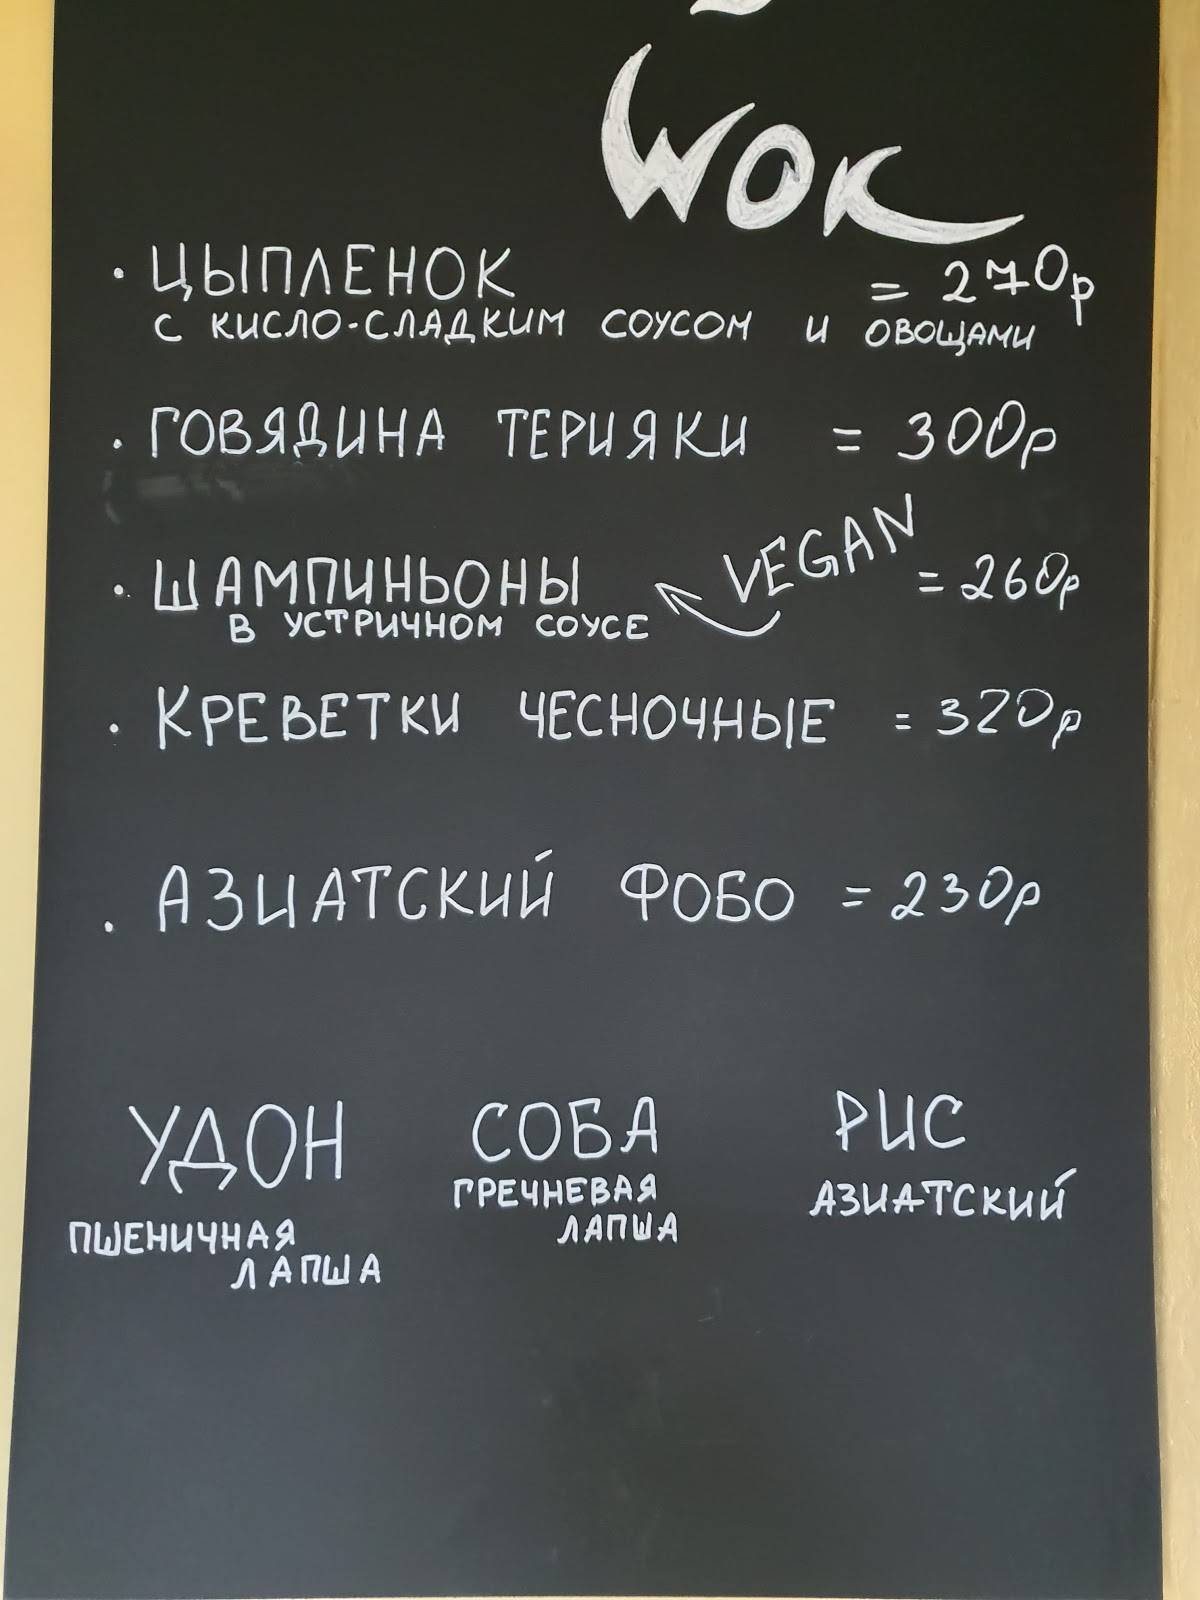 WOK
· ЦЫПЛЕНОК = 270р
С КИСЛО-СЛАДКИМ СОУСОМ И ОВОЩАМИ
· ГОВЯДИНА ТЕРИЯКИ = 300р
VEGAN
· ШАМПИНЬОНЫ = 260р
В УСТРИЧНОМ СОУСЕ
· КРЕВЕТКИ ЧЕСНОЧНЫЕ = 320р
· АЗИАТСКИЙ ФОБО = 230р
УДОН СОБА РИС
ПШЕНИЧНАЯ ГРЕЧНЕВАЯ АЗИАТСКИЙ
ЛАПША ЛАПША